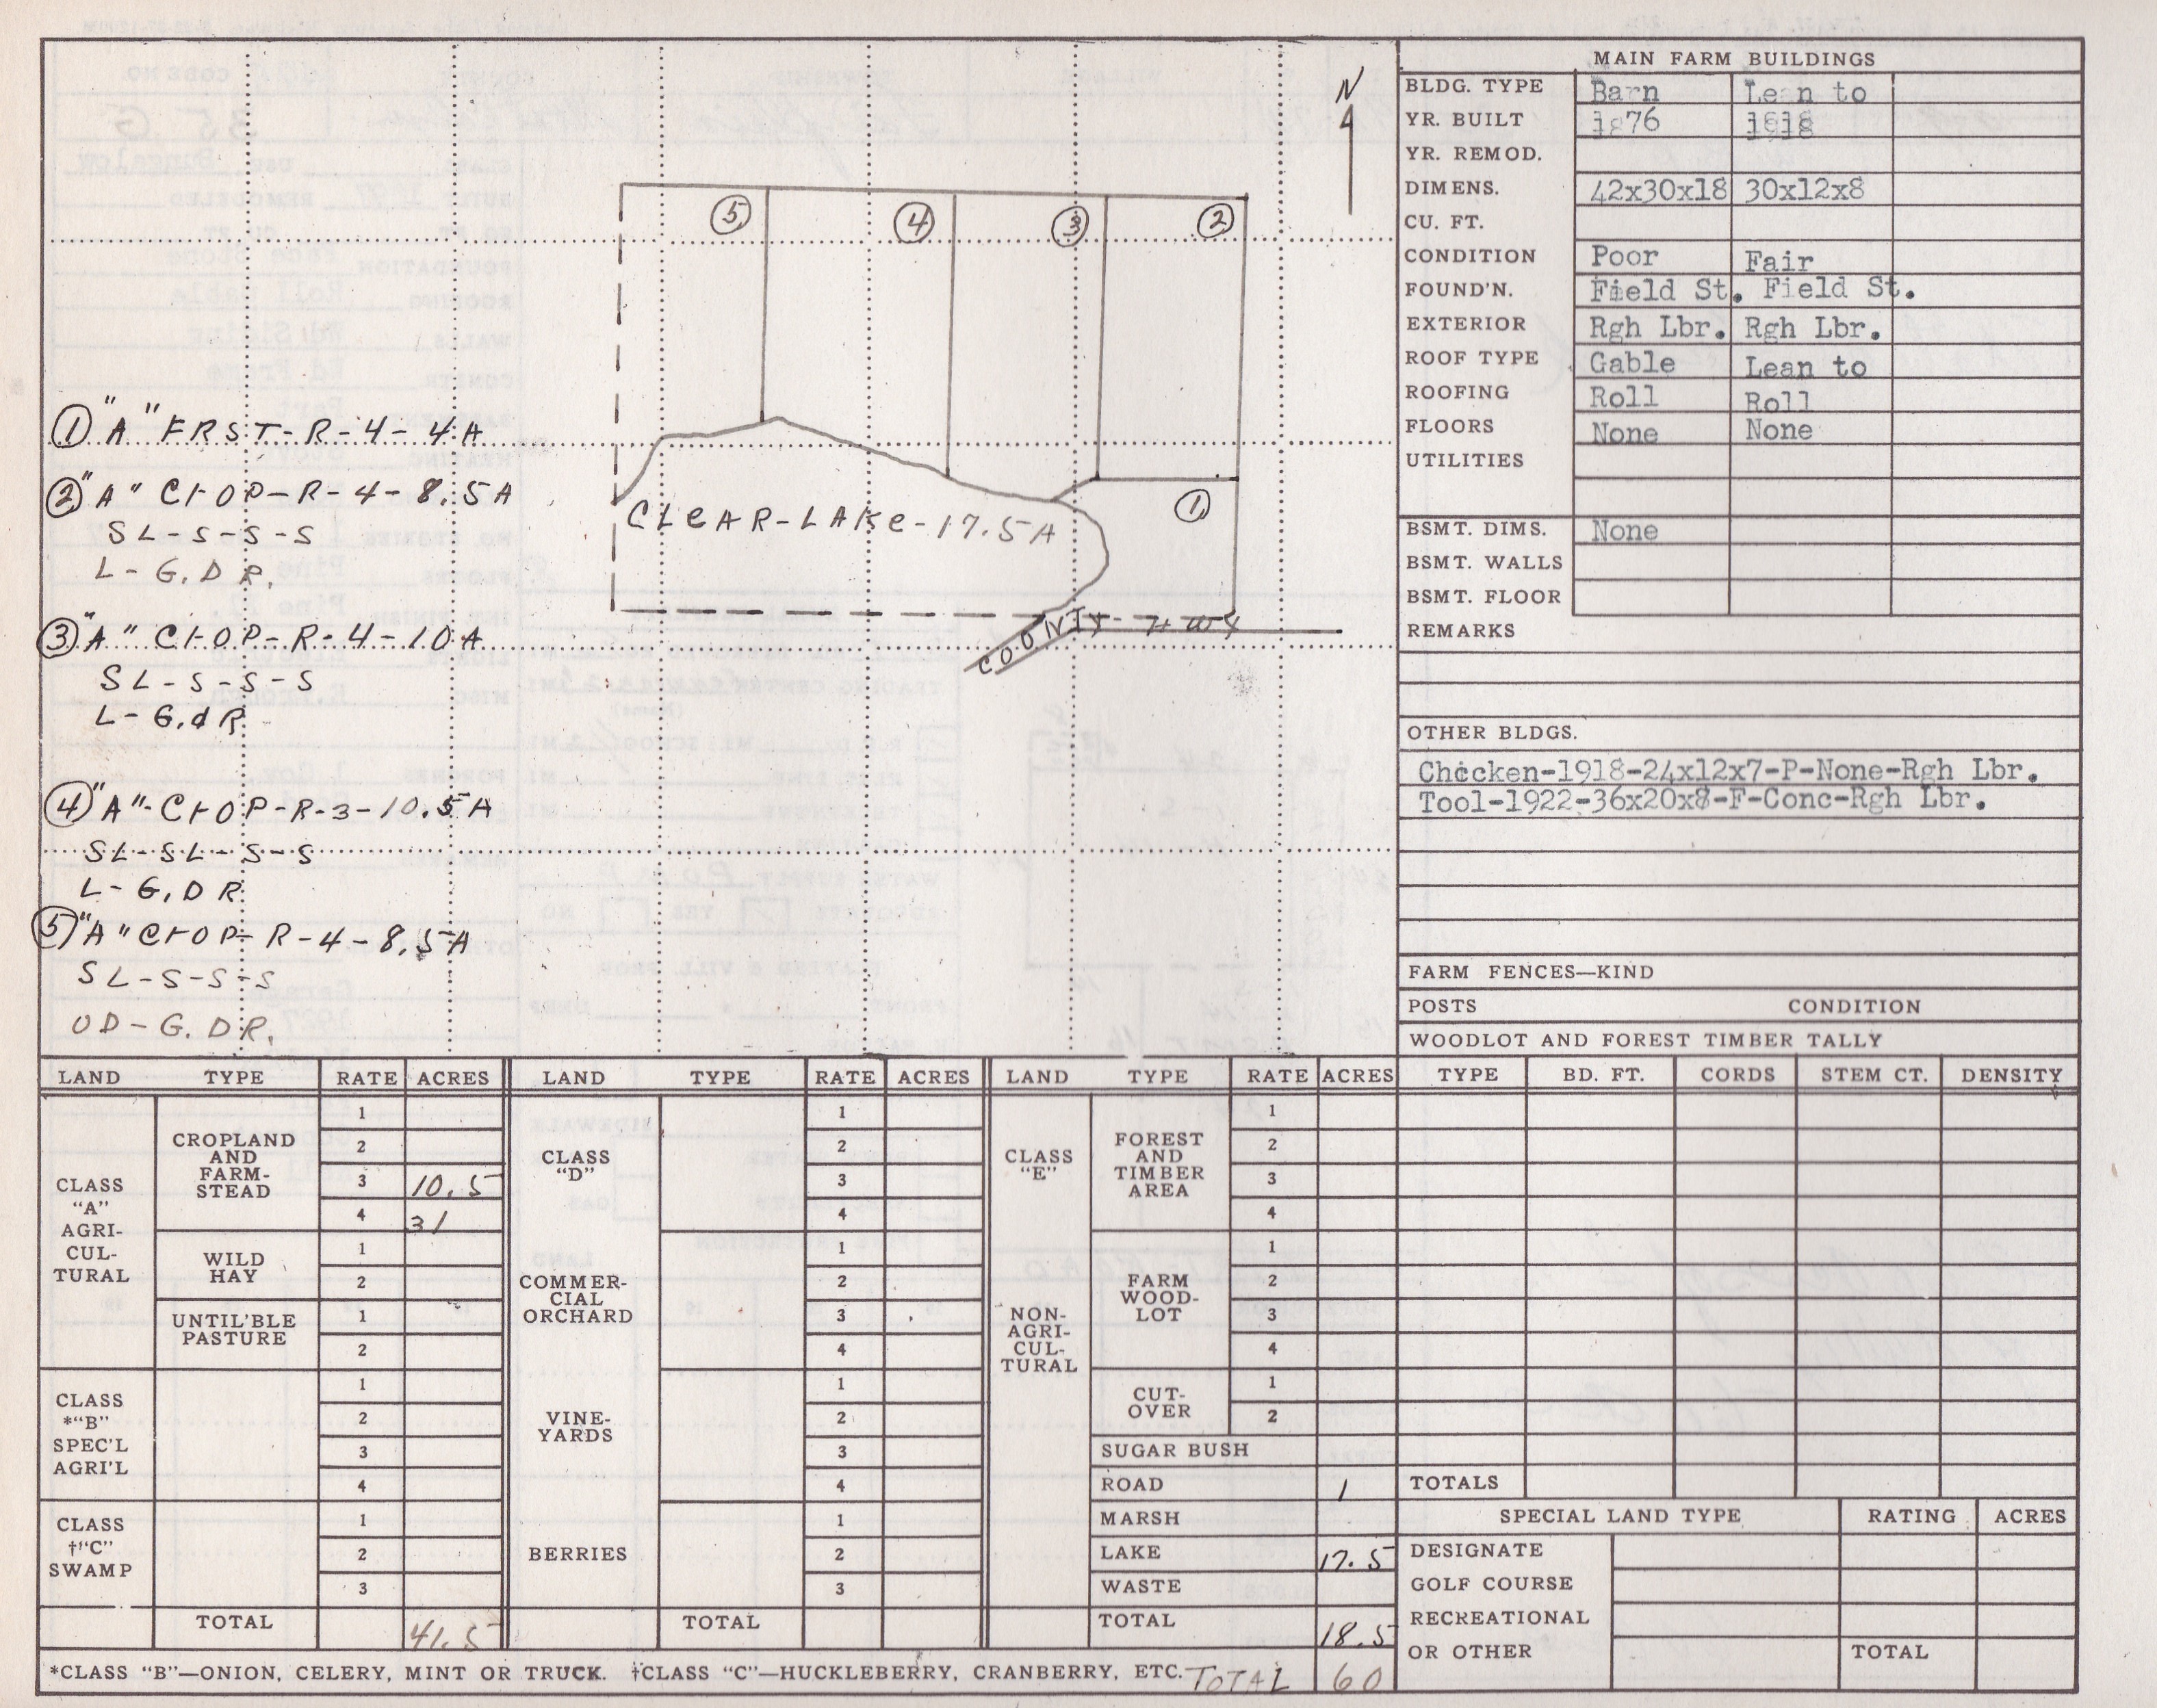 N
⑤ ④ ③ ②
①
CLEAR-LAKE-17.5A
COUNTY-HWY
① "A" FRST-R-4-4A
② "A" CrOP-R-4-8.5A
SL-S-S-S
L-G.DR.
③ "A" CrOP-R-4-10A
SL-S-S-S
L-G.dR.
④ "A"-CrOP-R-3-10.5A
SL-SL-S-S
L-G.DR.
⑤ "A" CrOP-R-4-8.5A
SL-S-S-S
OD-G.DR.
MAIN FARM BUILDINGS
BLDG. TYPE Barn Lean to
YR. BUILT 1876 1918
YR. REMOD.
DIMENS. 42x30x18 30x12x8
CU. FT.
CONDITION Poor Fair
FOUND'N. Field St. Field St.
EXTERIOR Rgh Lbr. Rgh Lbr.
ROOF TYPE Gable Lean to
ROOFING Roll Roll
FLOORS None None
UTILITIES
BSMT. DIMS. None
BSMT. WALLS
BSMT. FLOOR
REMARKS
OTHER BLDGS.
Chicken-1918-24x12x7-P-None-Rgh Lbr.
Tool-1922-36x20x8-F-Conc-Rgh Lbr.
FARM FENCES—KIND
POSTS CONDITION
WOODLOT AND FOREST TIMBER TALLY
TYPE BD. FT. CORDS STEM CT. DENSITY
TOTALS
SPECIAL LAND TYPE RATING ACRES
DESIGNATE
GOLF COURSE
RECREATIONAL
OR OTHER TOTAL
LAND TYPE RATE ACRES
CLASS
"A"
AGRI-
CUL-
TURAL
CROPLAND
AND
FARM-
STEAD
1
2
3 10.5
4 31
WILD
HAY
1
2
UNTIL'BLE
PASTURE
1
2
CLASS
*"B"
SPEC'L
AGRI'L
1
2
3
4
CLASS
†"C"
SWAMP
1
2
3
TOTAL 41.5
LAND TYPE RATE ACRES
CLASS
"D"
1
2
3
4
COMMER-
CIAL
ORCHARD
1
2
3
4
VINE-
YARDS
1
2
3
4
BERRIES
1
2
3
TOTAL
LAND TYPE RATE ACRES
CLASS
"E"
NON-
AGRI-
CUL-
TURAL
FOREST
AND
TIMBER
AREA
1
2
3
4
FARM
WOOD-
LOT
1
2
3
4
CUT-
OVER
1
2
SUGAR BUSH
ROAD 1
MARSH
LAKE 17.5
WASTE
TOTAL 18.5
*CLASS "B"—ONION, CELERY, MINT OR TRUCK. †CLASS "C"—HUCKLEBERRY, CRANBERRY, ETC. TOTAL 60